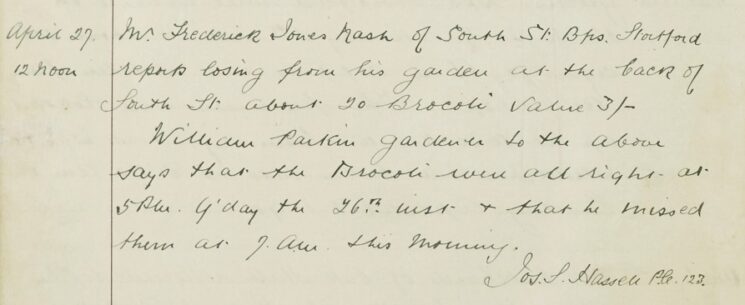 April 27. Mr. Frederick Jones Nash of South St. Bps. Stortford
12 Noon reports losing from his garden at the back of
South St. about 20 Brocoli Value 3/-
William Parkin gardener to the above
says that the Brocoli were all right at
5 P.M. y'day the 26th inst + that he missed
them at 7. Am. this morning.
Jos. S. Hassell P.C. 123.